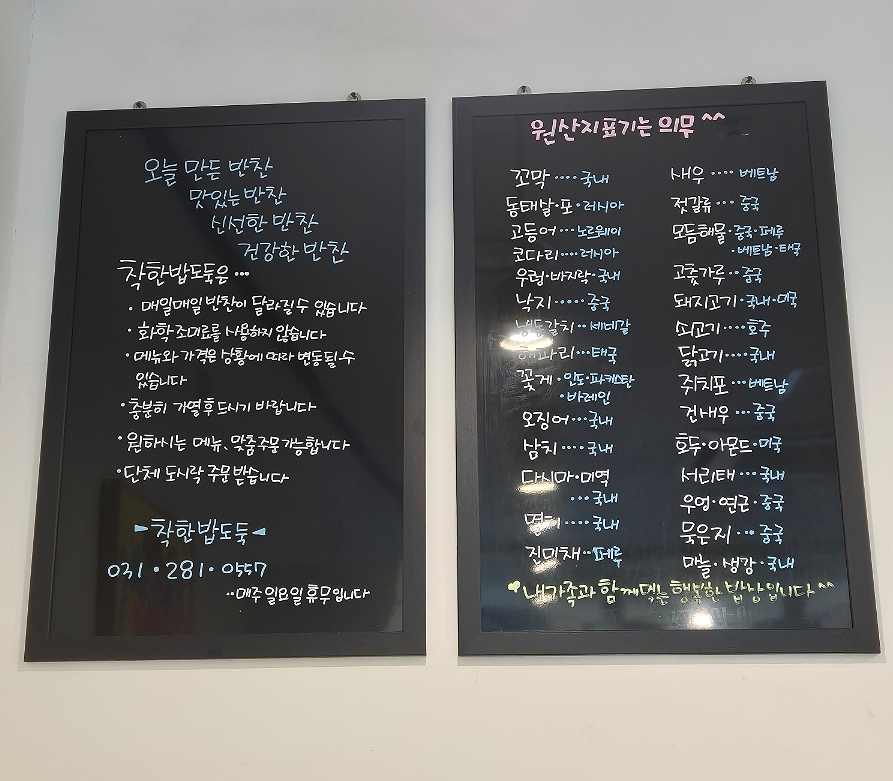 오늘 만든 반찬
맛있는 반찬
신선한 반찬
건강한 반찬
착한밥도둑은...
• 매일매일 반찬이 달라질 수 있습니다
• 화학조미료를 사용하지 않습니다
• 메뉴와 가격은 상황에 따라 변동될 수
있습니다
• 충분히 가열 후 드시기 바랍니다
• 원하시는 메뉴, 맞춤주문 가능합니다
• 단체 도시락 주문 받습니다
착한밥도둑
031 • 281 • 0557
..매주 일요일 휴무입니다
원산지표기는 의무 ^^
꼬막 .... 국내
동태알•포•러시아
고등어...노르웨이
코다리....러시아
우렁•바지락•국내
낙지.....중국
냉동갈치..세네갈
해파리...태국
꽃게•인도•파키스탄
•바레인
오징어...국내
삼치....국내
다시마•미역
...국내
멸치....국내
진미채..페루
새우....베트남
젓갈류...중국
모듬해물•중국•페루
•베트남•태국
고춧가루..중국
돼지고기•국내•미국
쇠고기....호주
닭고기...국내
쥐치포...베트남
건새우...중국
호두•아몬드•미국
서리태...국내
우엉•연근•중국
묵은지...중국
마늘•생강•국내
내가족과 함께먹는 행복한 밥상입니다^^